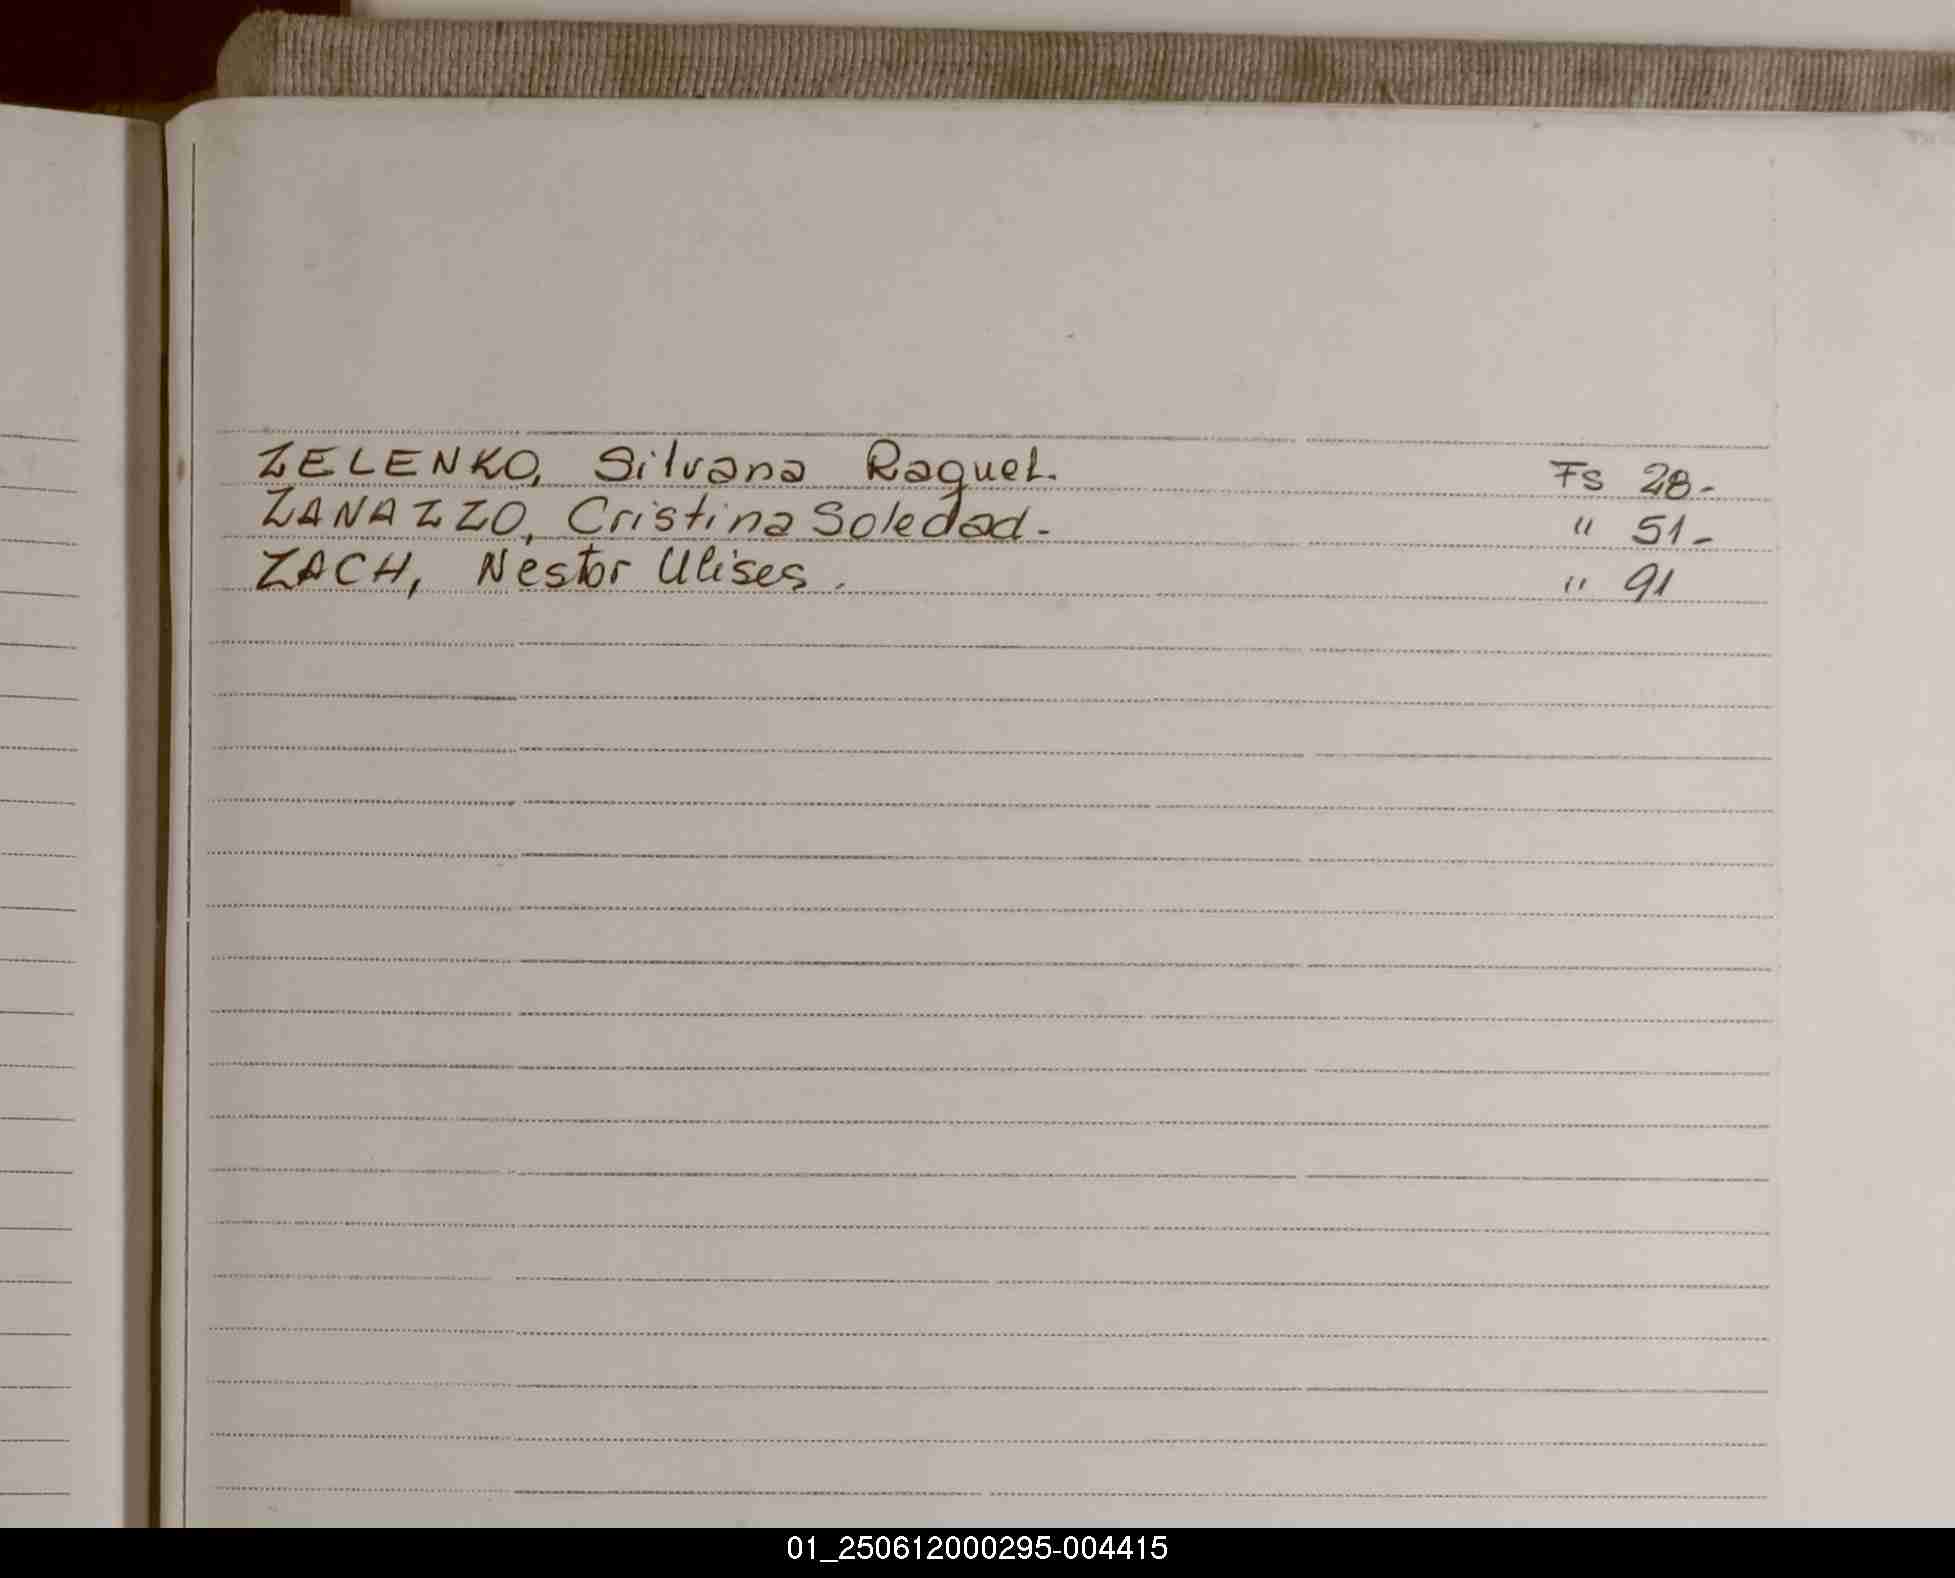 ZELENKO, Silvana Raquel. Fs 28-
ZANAZZO, Cristina Soledad- " 51-
ZACH, Nestor Ulises. " 91
01_250612000295-004415